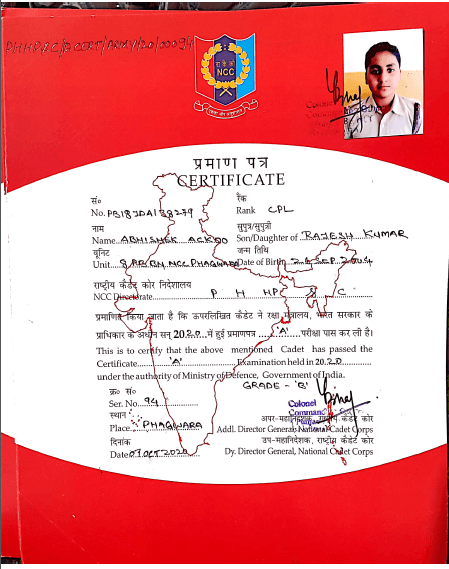 PHHP&C/B CERT/ARMY/20/00094
रा कै को
NCC
प्रमाण पत्र
CERTIFICATE
सं० रैंक
No. PB18JDA188279 Rank CPL
नाम सुपुत्र/सुपुत्री
Name ABHISHEK Son/Daughter of RAJESH KUMAR
यूनिट जन्म तिथि
Unit 8 PB BN NCC PHAGWARA Date of Birth 24 SEP
राष्ट्रीय कैडेट कोर निदेशालय
NCC Directorate P H HP & C
प्रमाणित किया जाता है कि उपरलिखित कैडेट ने रक्षा मंत्रालय, भारत सरकार के
प्राधिकार के अधीन सन् 2020 में हुई प्रमाणपत्र 'A' परीक्षा पास कर ली है।
This is to certify that the above mentioned Cadet has passed the
Certificate 'A' Examination held in 2020
under the authority of Ministry of Defence, Government of India.
GRADE - 'B'
क्र० सं०
Ser. No. 94 Colonel
स्थान अपर-महानिदेशक, राष्ट्रीय कैडेट कोर
Place PHAGWARA Addl. Director General, National Cadet Corps
दिनांक उप-महानिदेशक, राष्ट्रीय कैडेट कोर
Date 07 OCT 2020 Dy. Director General, National Cadet Corps